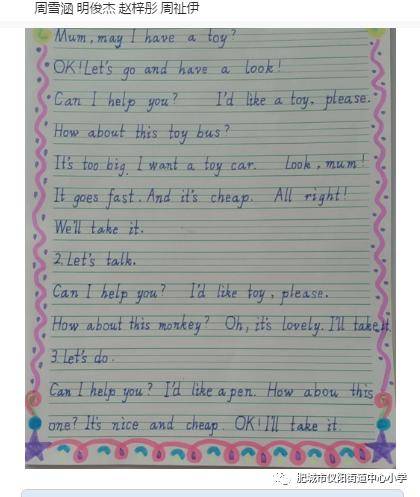 周雪涵 明俊杰 赵梓彤 周祉伊
Mum, may I have a toy?
OK! Let's go and have a look!
Can I help you? I'd like a toy, please.
How about this toy bus?
It's too big. I want a toy car. Look, mum!
It goes fast. And it's cheap. All right!
We'll take it.
2. Let's talk.
Can I help you? I'd like toy, please.
How about this monkey? Oh, it's lovely. I'll take it.
3. Let's do.
Can I help you? I'd like a pen. How abou this
one? It's nice and cheap. OK! I'll take it.
肥城市仪阳街道中心小学